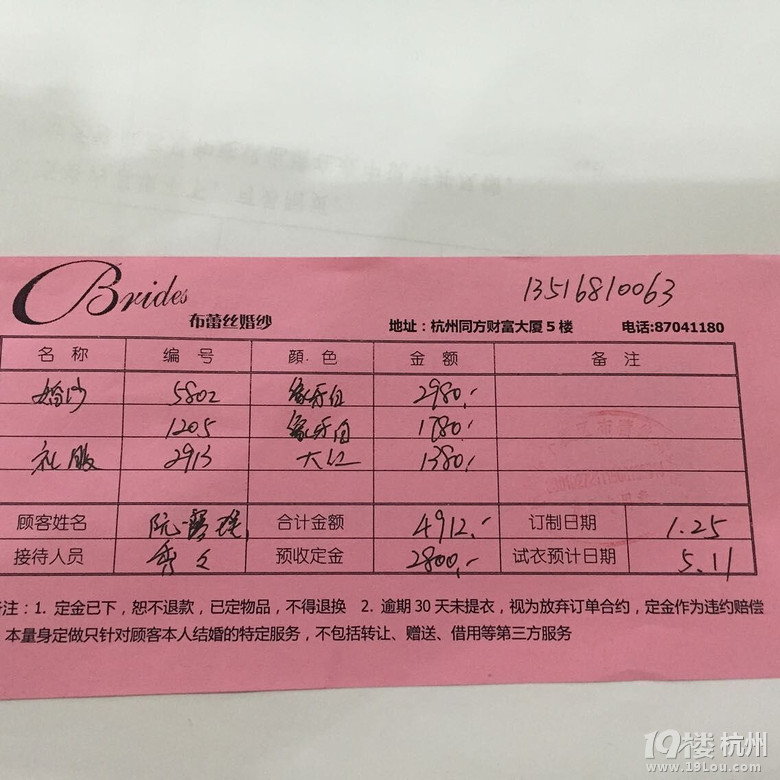 13516810063
Brides
布蕾丝婚纱 地址：杭州同方财富大厦5楼 电话:87041180
名称 编号 颜.色 金额 备注
婚纱 5802 象牙白 2980.-
1205 象牙白 1780.-
礼服 2913 大红 1380.-
顾客姓名 阮 合计金额 4912.- 订制日期 1.25
接待人员 预收定金 2800.- 试衣预计日期 5.11
注：1. 定金已下，恕不退款，已定物品，不得退换 2. 逾期30天未提衣，视为放弃订单合约，定金作为违约赔偿
本量身定做只针对顾客本人结婚的特定服务，不包括转让、赠送、借用等第三方服务
19楼杭州
www.19Lou.com